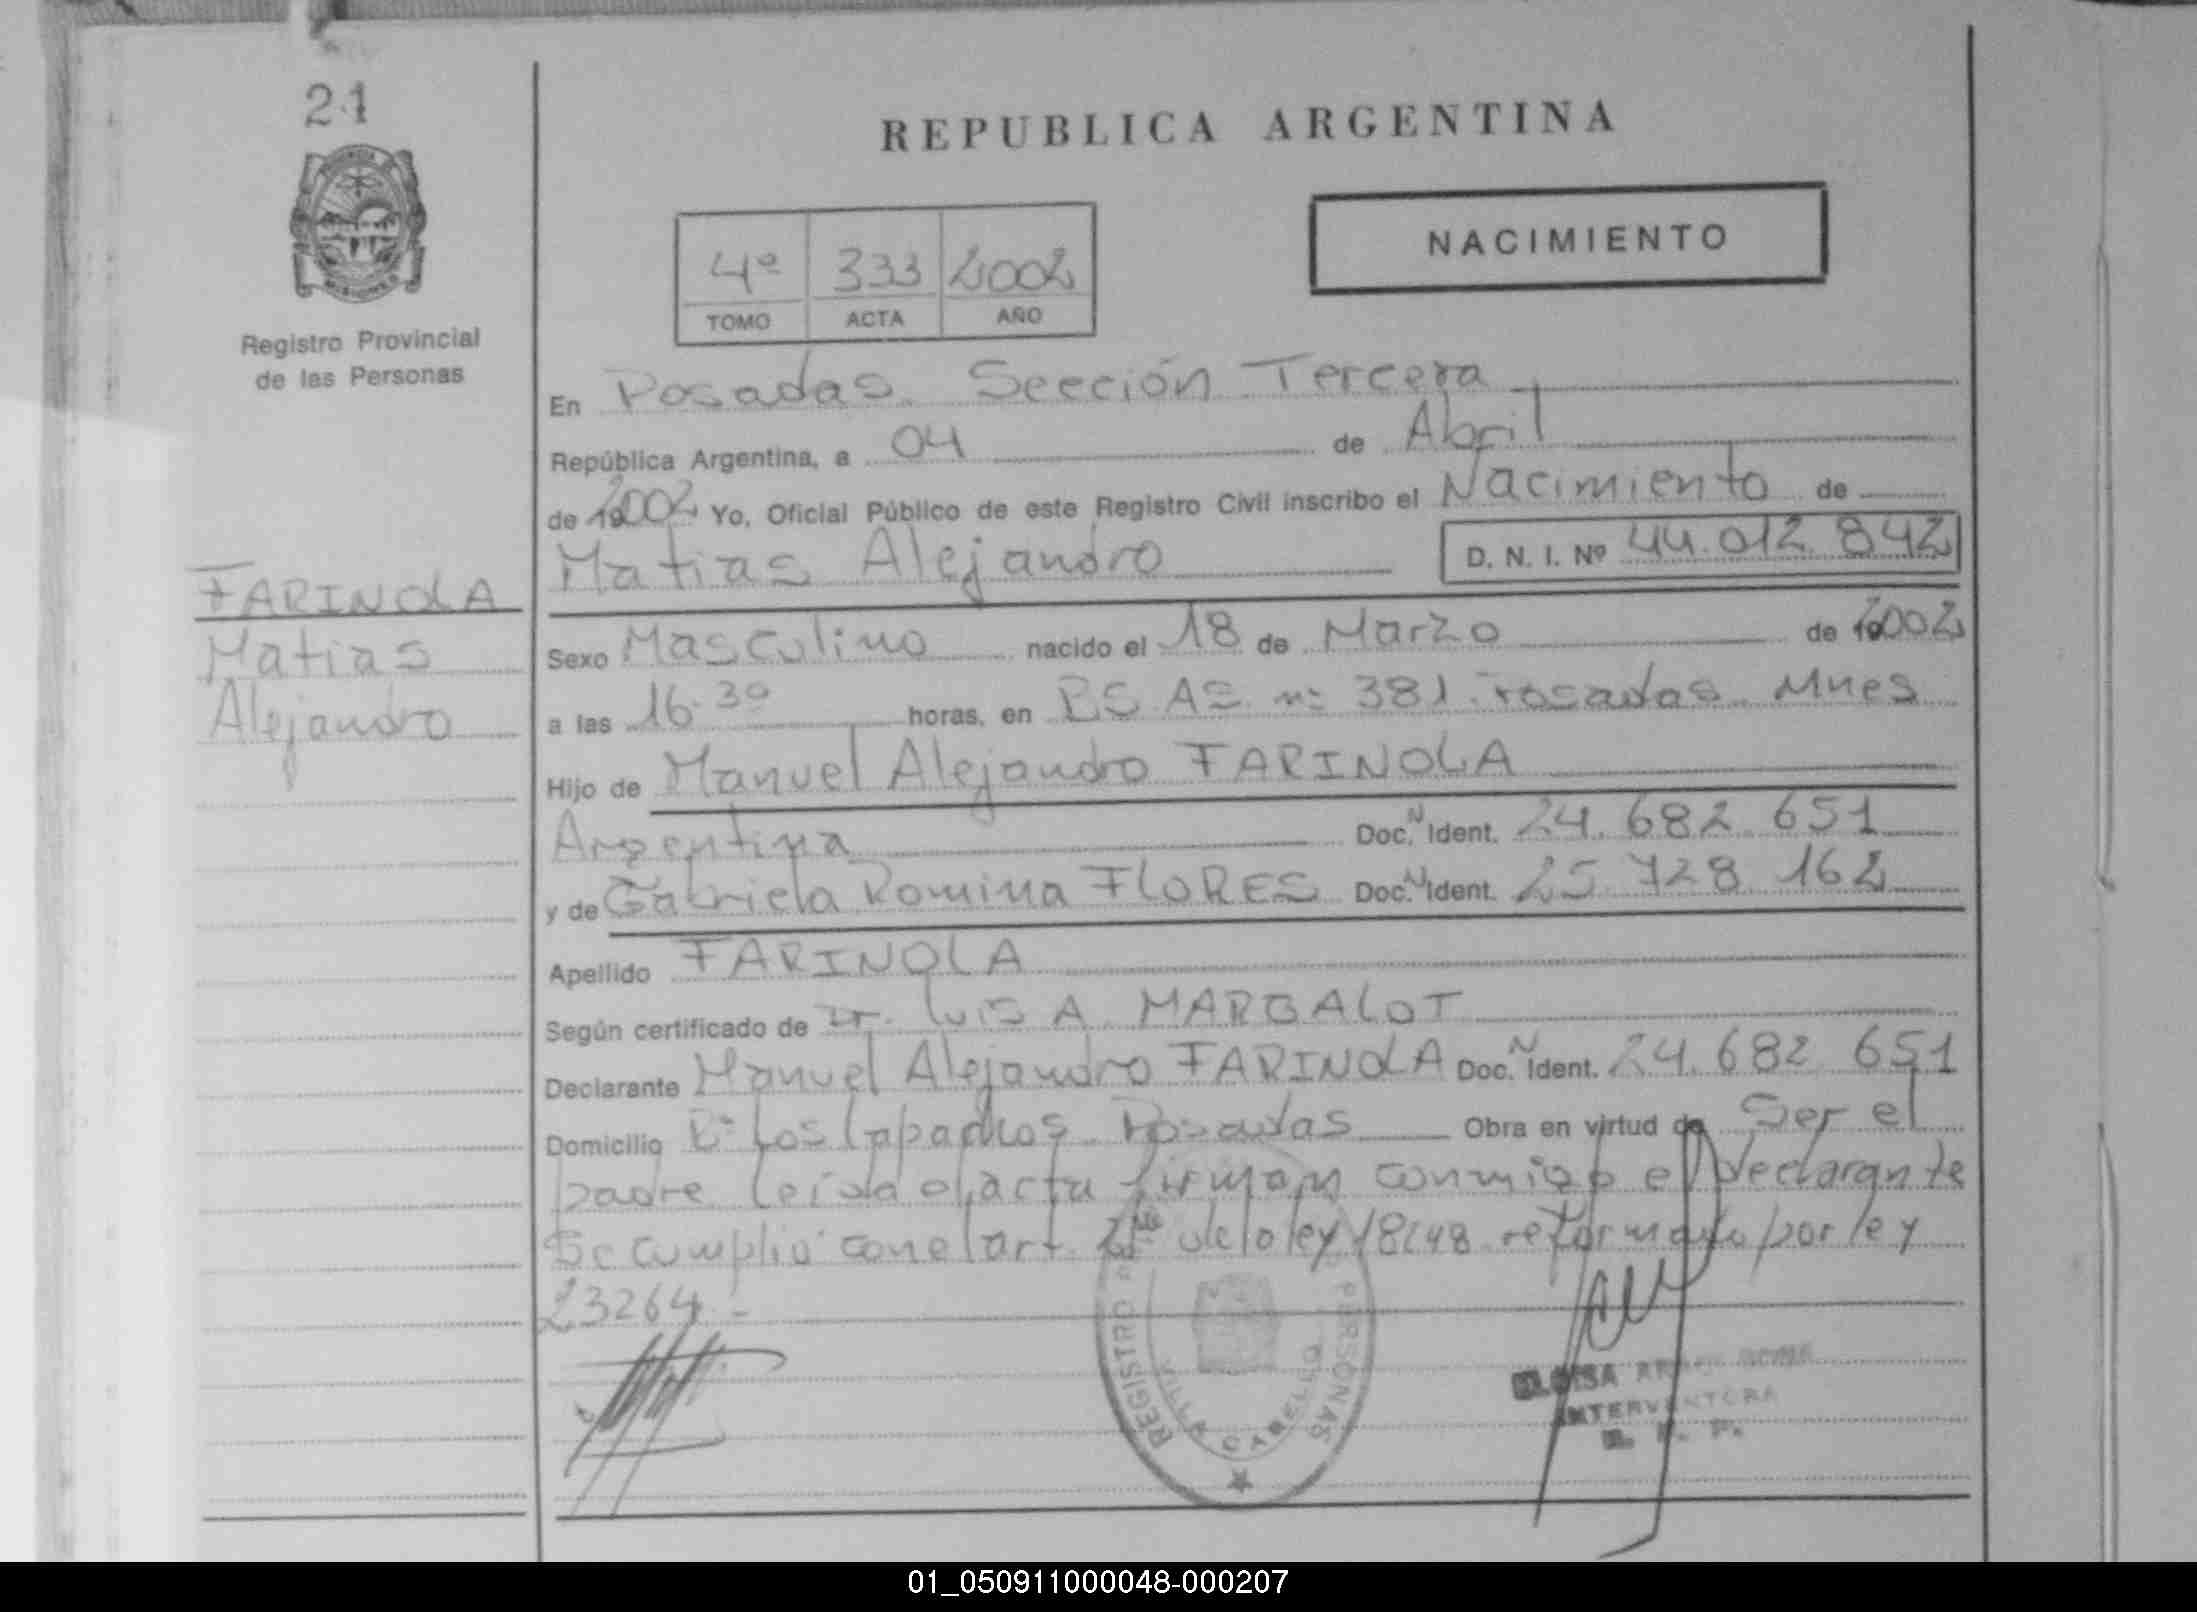 21
REPUBLICA ARGENTINA
NACIMIENTO
4º 333 2002
TOMO ACTA AÑO
Registro Provincial
de las Personas
En Posadas. Sección Tercera
República Argentina, a 04 de Abril
de 2002 Yo, Oficial Público de este Registro Civil inscribo el Nacimiento de
Matias Alejandro D. N. I. Nº 44.012.842
FARINOLA
Matias
Alejandro
Sexo Masculino nacido el 18 de Marzo de 2002
a las 16.30 horas, en BS AS nº 381 Posadas Mnes
Hijo de Manuel Alejandro FARINOLA
Argentina Doc. N Ident. 24.682.651
y de Gabriela Romina FLORES Doc. N Ident. 25.728.162
Apellido FARINOLA
Según certificado de Dr. Luis A MARGALOT
Declarante Manuel Alejandro FARINOLA Doc. N Ident. 24.682.651
Domicilio Bº Los Lapachos Posadas Obra en virtud de Ser el
padre leida el acta firman conmigo el declarante
Se cumplio con el art. de la ley 18248 reformado por ley
23264.-
REGISTRO PERSONAS
VILLA CABELLO
ELOISA
INTERVENTORA
R. P. P.
01_050911000048-000207